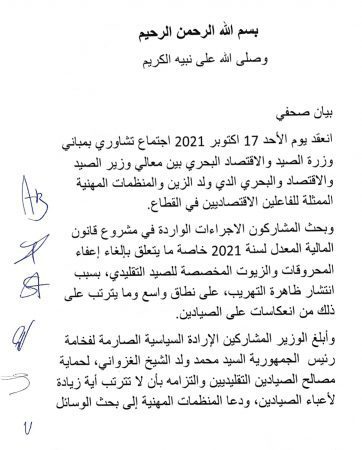 بسم الله الرحمن الرحيم
وصلى الله على نبيه الكريم
بيان صحفي
انعقد يوم الأحد 17 اكتوبر 2021 اجتماع تشاوري بمباني
وزرة الصيد والاقتصاد البحري بين معالي وزير الصيد
والاقتصاد والبحري الدي ولد الزين والمنظمات المهنية
الممثلة للفاعلين الاقتصاديين في القطاع.
وبحث المشاركون الاجراءات الواردة في مشروع قانون
المالية المعدل لسنة 2021 خاصة ما يتعلق بإلغاء إعفاء
المحروقات والزيوت المخصصة للصيد التقليدي، بسبب
انتشار ظاهرة التهريب، على نطاق واسع وما يترتب على
ذلك من انعكاسات على الصيادين.
وأبلغ الوزير المشاركين الإرادة السياسية الصارمة لفخامة
رئيس الجمهورية السيد محمد ولد الشيخ الغزواني، لحماية
مصالح الصيادين التقليديين والتزامه بأن لا تترتب أية زيادة
لأعباء الصيادين، ودعا المنظمات المهنية إلى بحث الوسائل